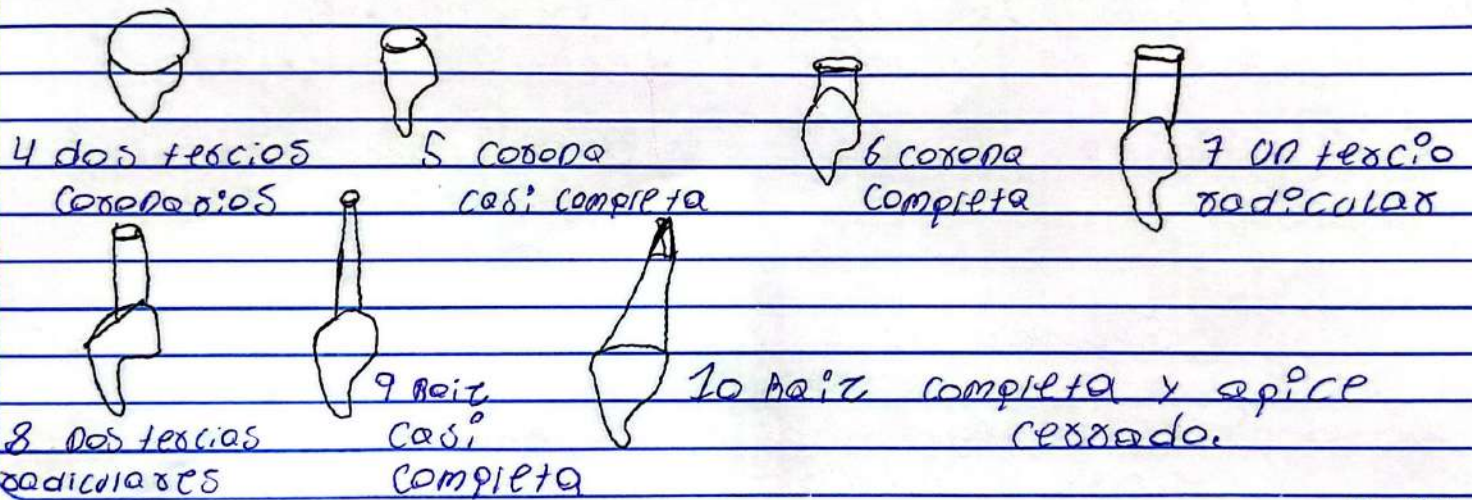 4 dos tercios
coronarios
5 corona
casi completa
6 corona
completa
7 un tercio
radicular
8 Dos tercias
radiculares
9 Raiz
casi
completa
10 Raiz completa y apice
cerrado.